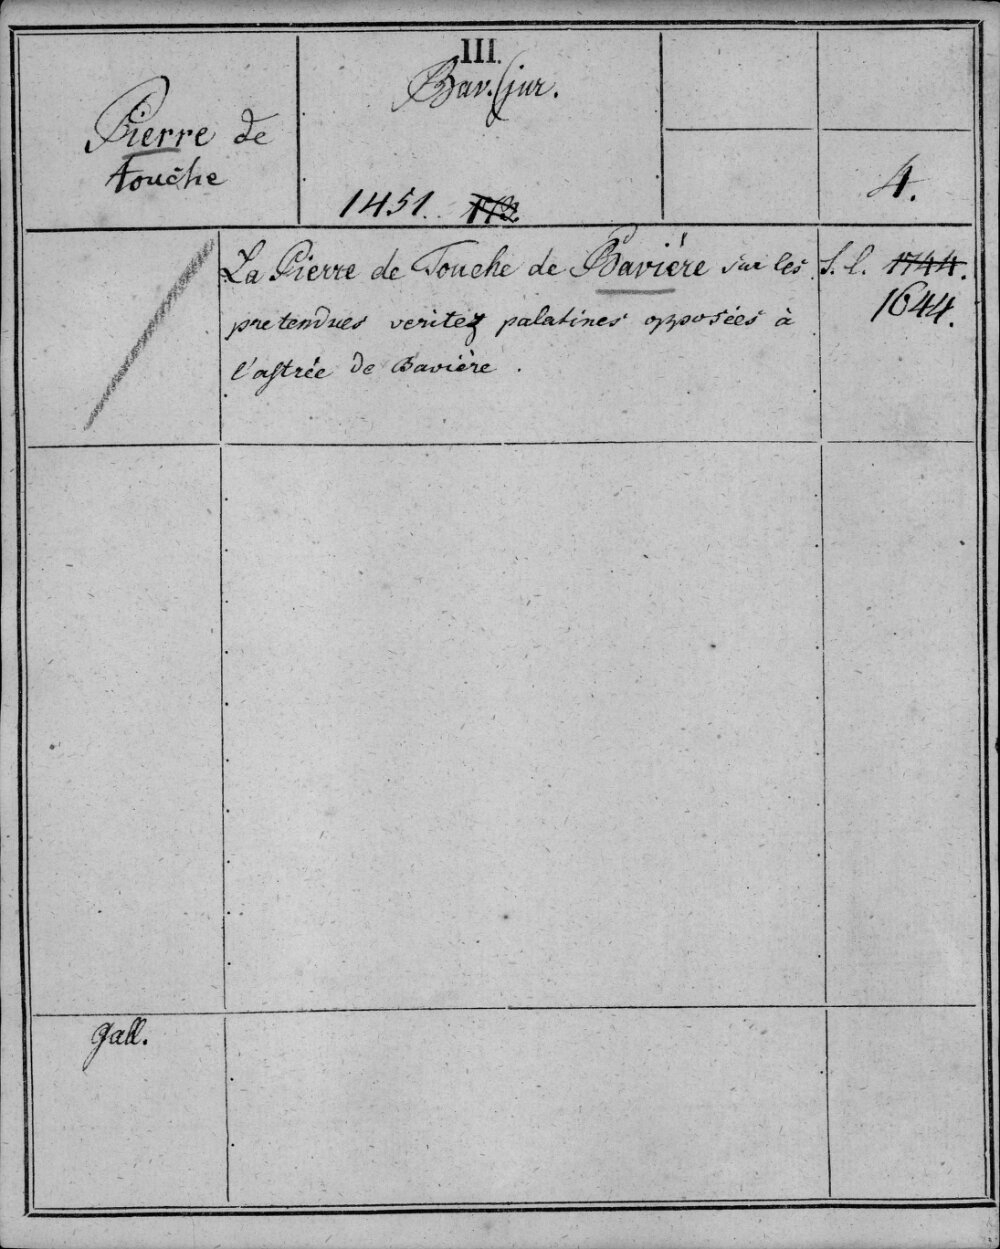 III.
Bav. jur.
Pierre de
touche
1451. 172
4.
La Pierre de Touche de Baviére sur les
pretendues veritez palatines opposées à
l'astrée de Bavière .
S. l. 1744.
1644.
gall.